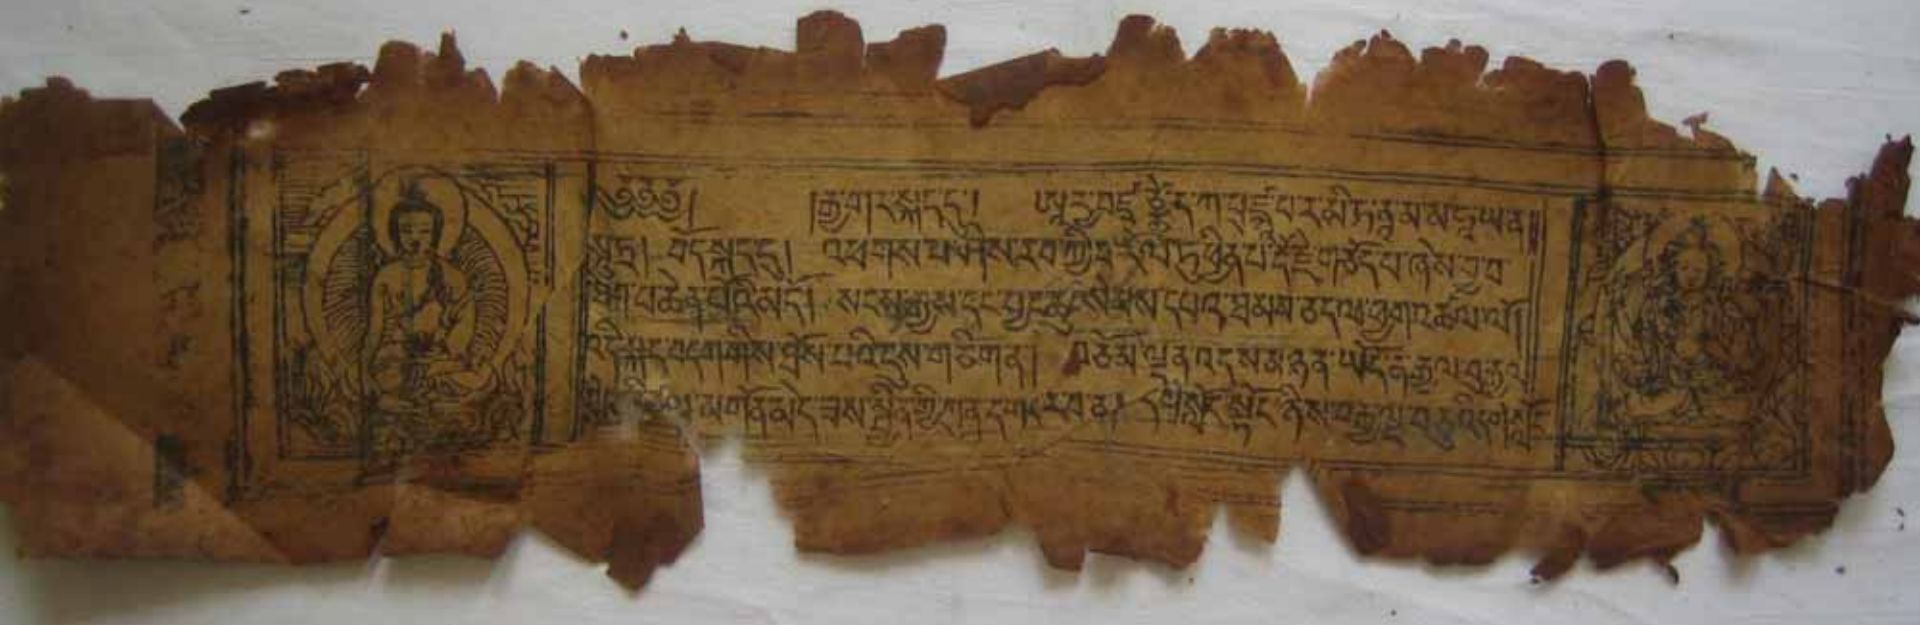 ༄༅༅། །རྒྱ་གར་སྐད་དུ། ཨཱརྱ་བཛྲ་ཙྪེ་དི་ཀ་པྲཛྙཱ་པ་ར་མི་ཏ་ནཱ་མ་མ་ཧཱ་ཡ་ན
སཱུ་ཏྲ། བོད་སྐད་དུ། འཕགས་པ་ཤེས་རབ་ཀྱི་ཕ་རོལ་ཏུ་ཕྱིན་པ་རྡོ་རྗེ་གཅོད་པ་ཞེས་བྱ་བ
ཐེག་པ་ཆེན་པོའི་མདོ། སངས་རྒྱས་དང་བྱང་ཆུབ་སེམས་དཔའ་ཐམས་ཅད་ལ་ཕྱག་འཚལ་ལོ།
འདི་སྐད་བདག་གིས་ཐོས་པའི་དུས་གཅིག་ན། བཅོམ་ལྡན་འདས་མཉན་ཡོད་ན་རྒྱལ་བུ་རྒྱལ
མགོན་མེད་ཟས་སྦྱིན་གྱི་ཀུན་དགའ་ར་བ་ན། དགེ་སློང་སྟོང་ཉིས་བརྒྱ་ལྔ་བཅུའི་དགེ་སློང